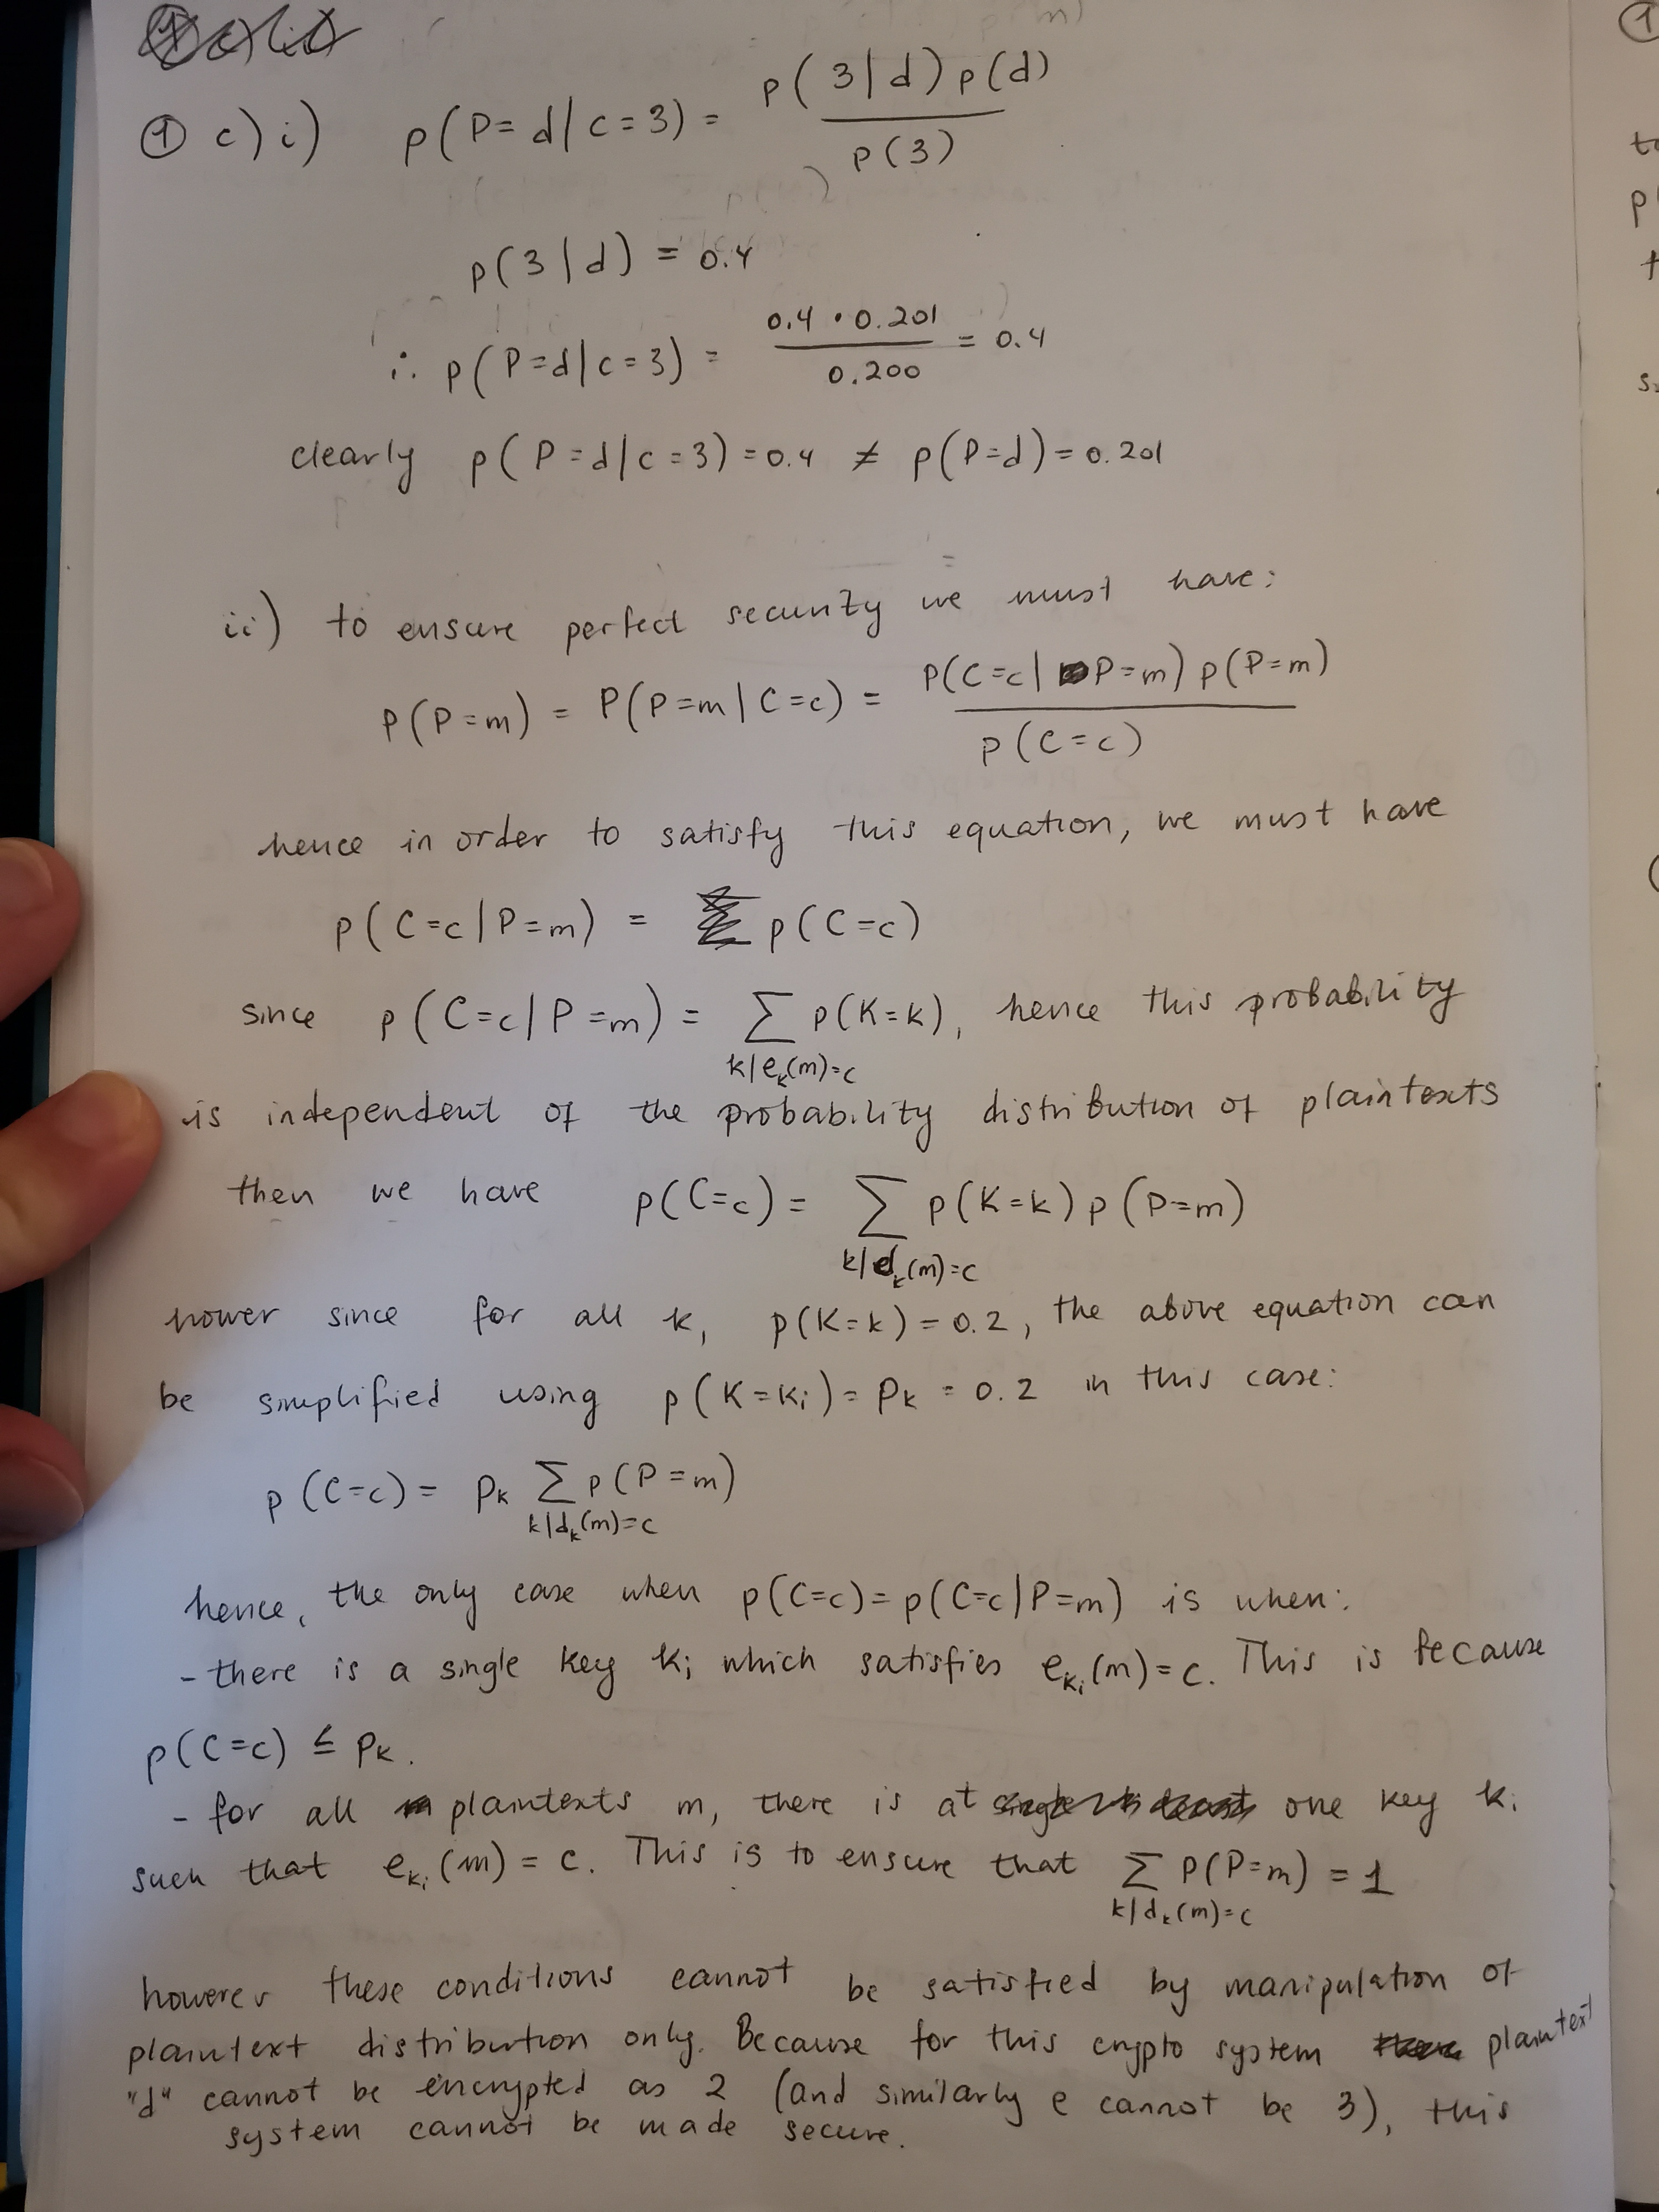 ① c) i) p(P=d|c=3) = p(3|d)p(d) / p(3)
p(3|d) = 0.4
∴ p(P=d|c=3) = 0.4 · 0.201 / 0.200 = 0.4
clearly p(P=d|c=3)=0.4 ≠ p(P=d)=0.201
ii) to ensure perfect security we must have:
P(P=m) = P(P=m|C=c) = P(C=c|P=m) p(P=m) / p(C=c)
hence in order to satisfy this equation, we must have
p(C=c|P=m) = p(C=c)
since p(C=c|P=m) = ∑ p(K=k), hence this probability
k|eₖ(m)=c
is independent of the probability distribution of plaintexts
then we have p(C=c) = ∑ p(K=k) p(P=m)
k|dₖ(m)=c
hower since for all k, p(K=k)=0.2, the above equation can
be simplified using p(K=Ki) = Pk = 0.2 in this case:
p(C=c) = Pk ∑ p(P=m)
k|dₖ(m)=c
hence, the only case when p(C=c)=p(C=c|P=m) is when:
- there is a single key ki which satisfies eki(m)=c. This is because
p(C=c) ≤ Pk.
- for all plaintexts m, there is at one key ki
such that eki(m) = c. This is to ensure that ∑ P(P=m) = 1
k|dₖ(m)=c
however these conditions cannot be satisfied by manipulation of
plaintext distribution only. Because for this crypto system plaintext
"d" cannot be encrypted as 2 (and similarly e cannot be 3), this
system cannot be made secure.